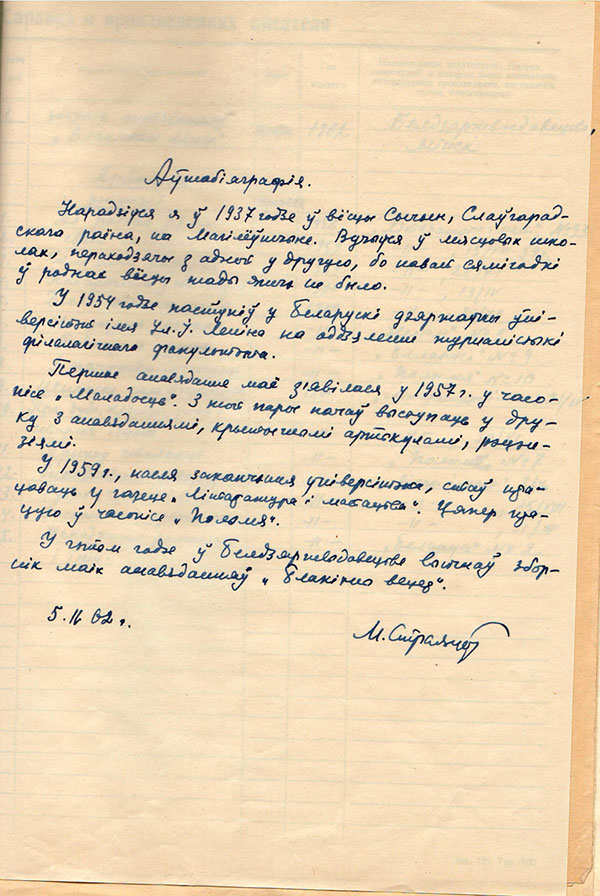 Аўтабіяграфія.
Нарадзіўся я ў 1937 годзе ў вёсцы Сычын, Слаўгарад-
скага раёна, на Магілёўшчыне. Вучыўся ў мясцовых шко-
лах, пераходзячы з адной у другую, бо нават сямігодкі
ў роднай вёсцы тады яшчэ не было.
У 1954 годзе паступіў у Беларускі дзяржаўны ўні-
версітэт імя Ул. І. Леніна на аддзяленне журналістыкі
філалагічнага факультэта.
Першае апавяданне маё з'явілася ў 1957 г. у часо-
пісе „Маладосць". З той пары пачаў выступаць у дру-
ку з апавяданнямі, крытычнымі артыкуламі, рэцэн-
зіямі.
У 1959 г., пасля заканчэння універсітэта, стаў пра-
цаваць у газеце „Літаратура і мастацтва". Цяпер пра-
цую ў часопісе „Полымя".
У гэтым годзе ў Белдзяржвыдавецтве выйшаў збор-
нік маіх апавяданняў „Блакітны вецер".
5. 62 г.
М. Стральцоў